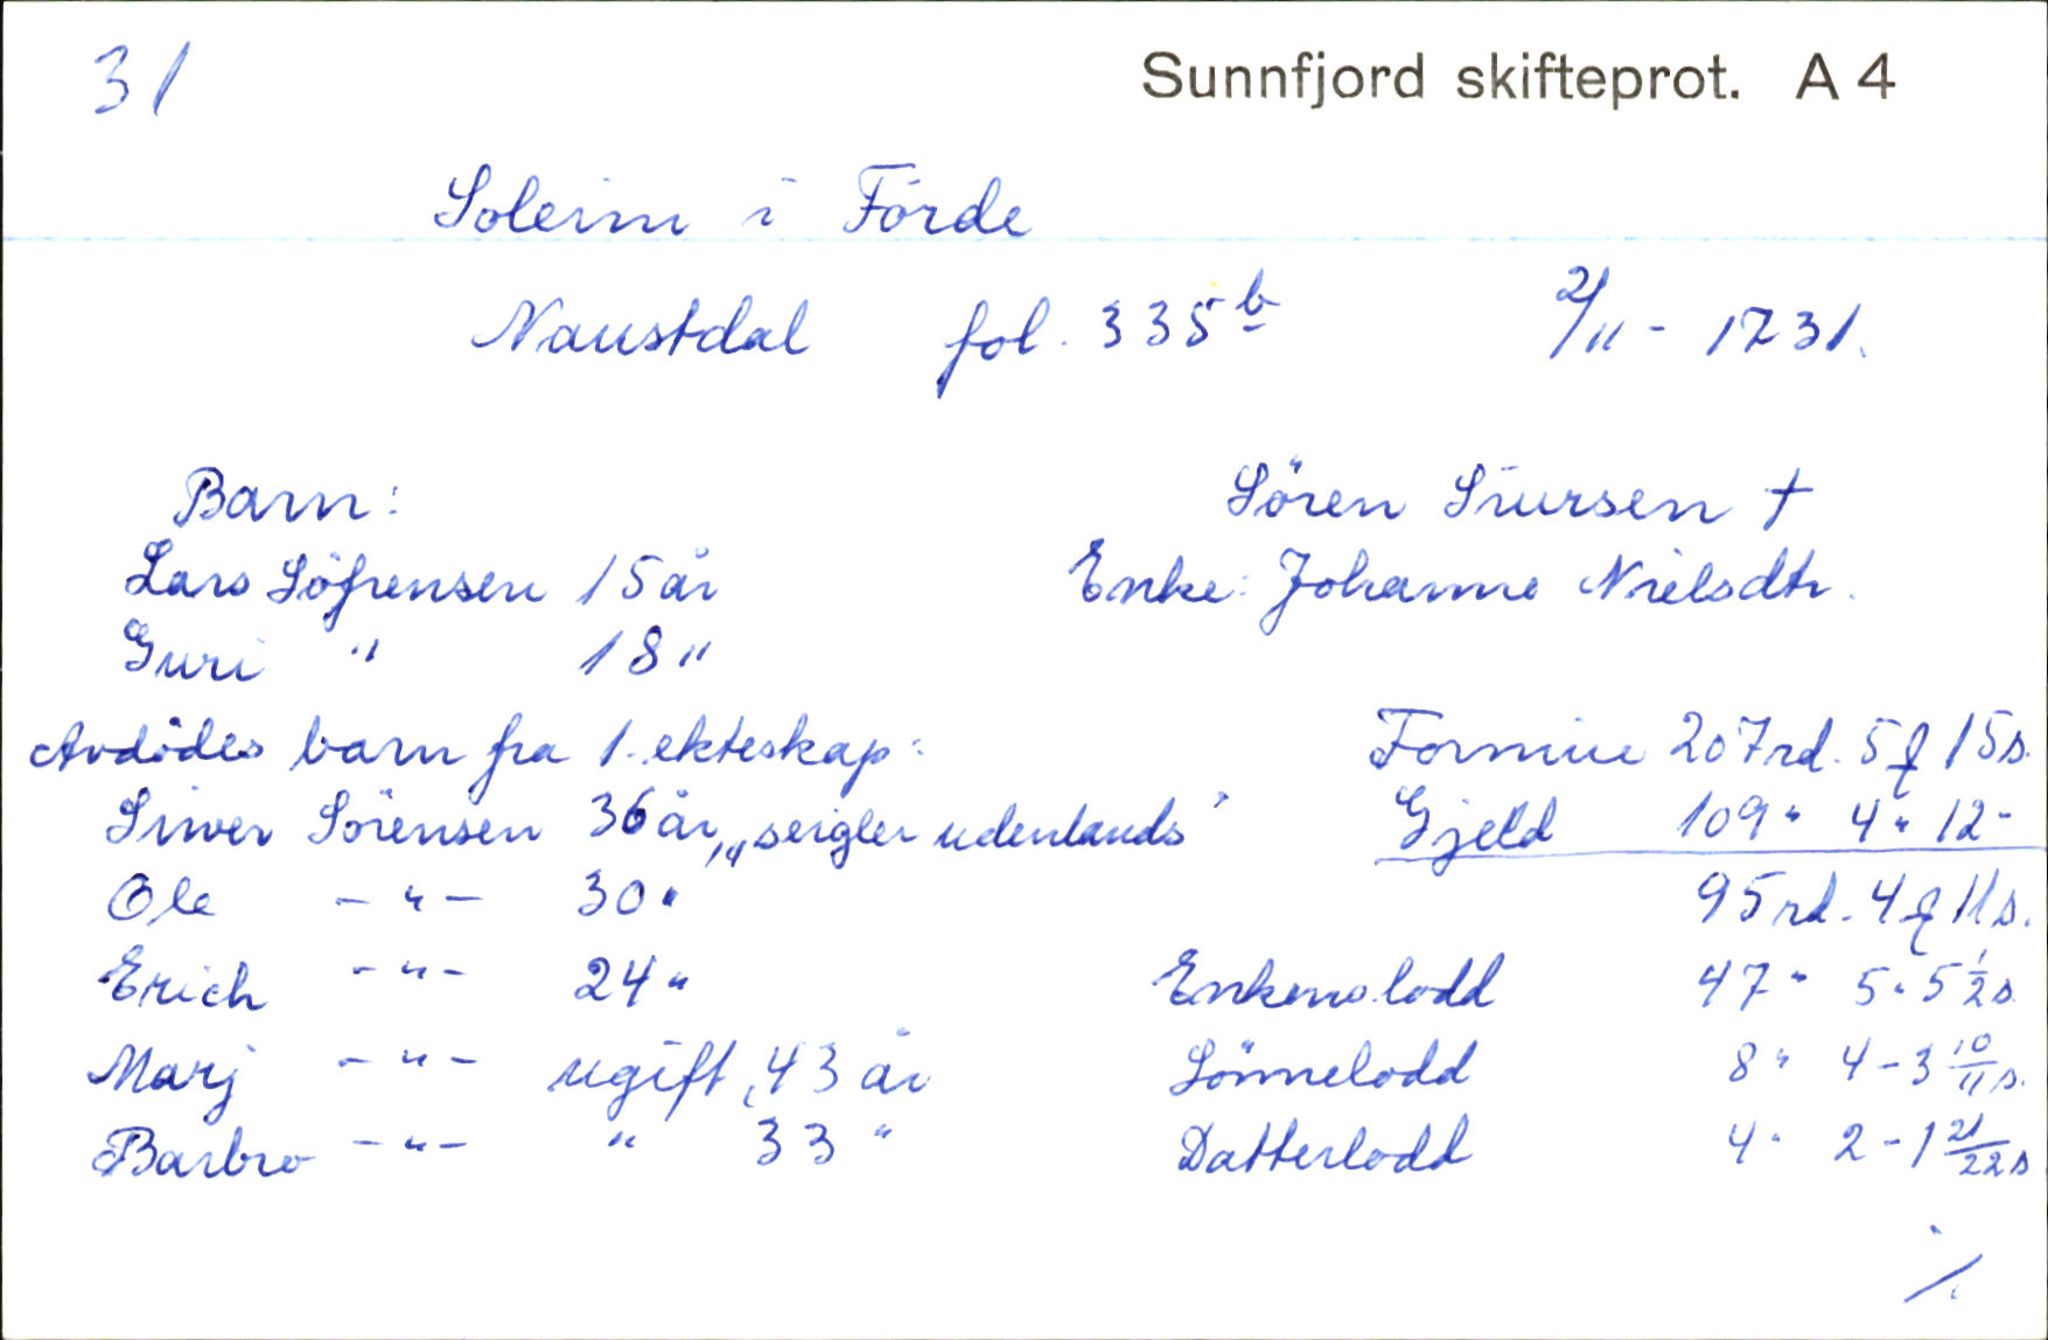 31
Sunnfjord skifteprot. A 4
Soleim i Förde
Naustdal fol. 335 b 2/11 - 1731.
Barn:
Lars Söfrensen 15 år
Guri " 18 "
Avdödes barn fra 1. ekteskap:
Siwer Sörensen 36 år, "seigler udenlands"
Ole - " - 30 "
Erich - " - 24 "
Marj - " - ugift, 43 år
Barbro - " - " 33 "
Sören Siursen †
Enke: Johanne Nielsdtr.
Formue 207 rd. 5 ƒ 15 s.
Gjeld 109 " 4 " 12 "
95 rd. 4 ƒ 11 s.
Enkens lodd 47 " 5 " 5 1/2 s
Sönnelodd 8 " 4 - 3 10/11 s.
Datterlodd 4 " 2 - 1 21/22 s
./.